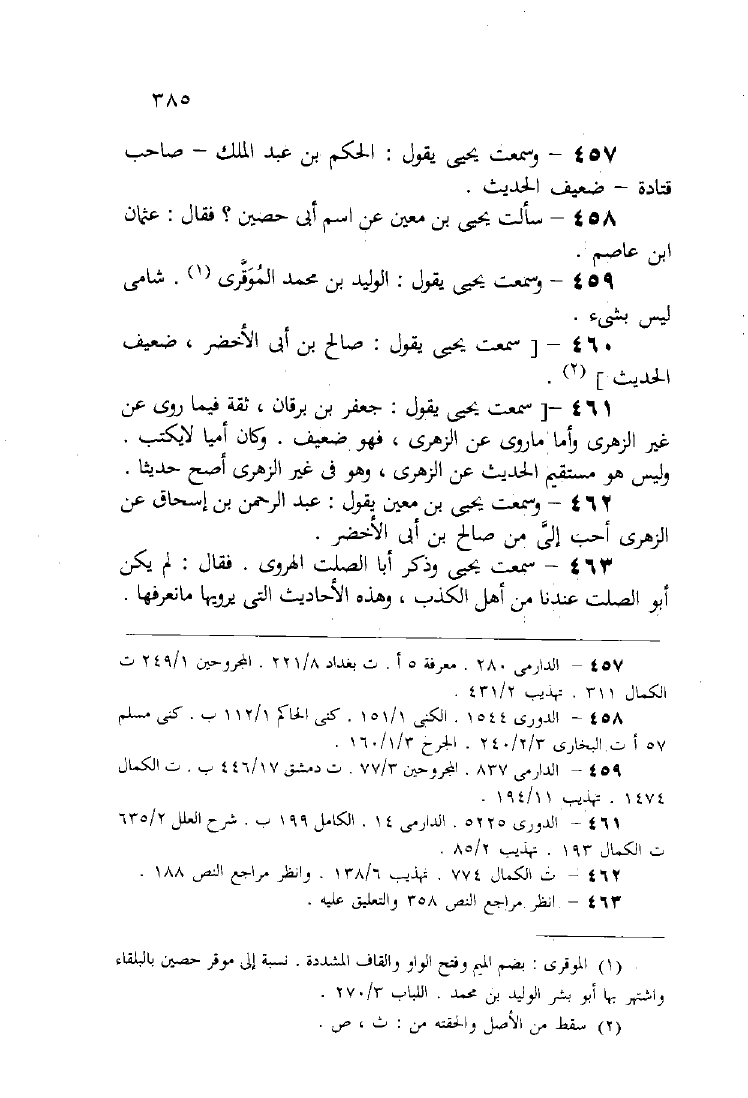 ٣٨٥
٤٥٧ – وسمعت يحيى يقول : الحكم بن عبد الملك – صاحب
قتادة – ضعيف الحديث .
٤٥٨ – سألت يحيى بن معين عن اسم أبى حصين ؟ فقال : عثمان
ابن عاصم .
٤٥٩ – وسمعت يحيى يقول : الوليد بن محمد المُوَقَّرى (١) . شامى
ليس بشىء .
٤٦٠ – [ سمعت يحيى يقول : صالح بن أبى الأخضر ، ضعيف
الحديث ] (٢) .
٤٦١ –[ سمعت يحيى يقول : جعفر بن برقان ، ثقة فيما روى عن
غير الزهرى وأما ماروى عن الزهرى ، فهو ضعيف . وكان أميا لايكتب .
وليس هو مستقيم الحديث عن الزهرى ، وهو فى غير الزهرى أصح حديثا .
٤٦٢ – وسمعت يحيى بن معين يقول : عبد الرحمن بن إسحاق عن
الزهرى أحب إلىَّ من صالح بن أبى الأخضر .
٤٦٣ – سمعت يحيى وذكر أبا الصلت الهروى . فقال : لم يكن
أبو الصلت عندنا من أهل الكذب ، وهذه الأحاديث التى يرويها مانعرفها .
٤٥٧ – الدارمى ٢٨٠ . معرفة ٥ أ . ت بغداد ٢٢١/٨ . المجروحين ٢٤٩/١ ت
الكمال ٣١١ . تهذيب ٤٣١/٢ .
٤٥٨ – الدورى ١٥٤٤ . الكنى ١٥١/١ . كنى الحاكم ١١٢/١ ب . كنى مسلم
٥٧ أ ت البخارى ٢٤٠/٢/٣ . الجرح ١٦٠/١/٣ .
٤٥٩ – الدارمى ٨٣٧ . المجروحين ٧٧/٣ . ت دمشق ٤٤٦/١٧ ب . ت الكمال
١٤٧٤ . تهذيب ١٩٤/١١ .
٤٦١ – الدورى ٥٢٢٥ . الدارمى ١٤ . الكامل ١٩٩ ب . شرح العلل ٦٣٥/٢
ت الكمال ١٩٣ . تهذيب ٨٥/٢ .
٤٦٢ – ت الكمال ٧٧٤ . تهذيب ١٣٨/٦ . وانظر مراجع النص ١٨٨ .
٤٦٣ – انظر مراجع النص ٣٥٨ والتعليق عليه .
(١) الموقرى : بضم الميم وفتح الواو والقاف المشددة . نسبة إلى موقر حصين بالبلقاء
واشتهر بها أبو بشر الوليد بن محمد . اللباب ٢٧٠/٣ .
(٢) سقط من الأصل والحقته من : ث ، ص .